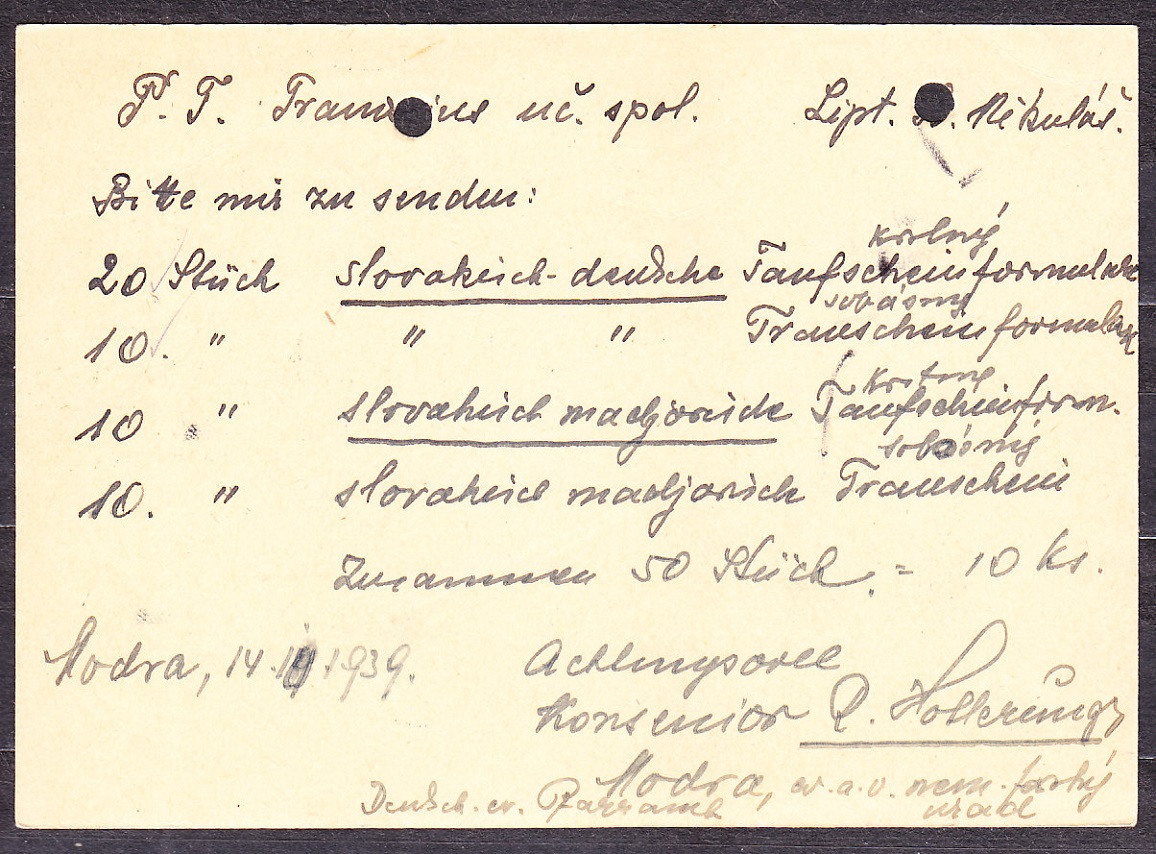 P. T. Tranoscius uč. spol. Lipt. Sv. Mikuláš.
Bitte mir zu senden:
krstný
20 Stück slovakisch-deutsche Taufscheinformulare
sobášný
10. " " " Trauschein formular
krstný
10 " slovakisch madjarische Taufscheinform.
sobášný
10. " slovakisch madjarisch Trauschein
Zusammen 50 Stück. = 10 Ks.
Modra, 14. 1939. Achtungsvoll
Konsenior Hollerung
Modra, ev. a. v. nem. farský
Deutsch. ev. Pfarramt úrad